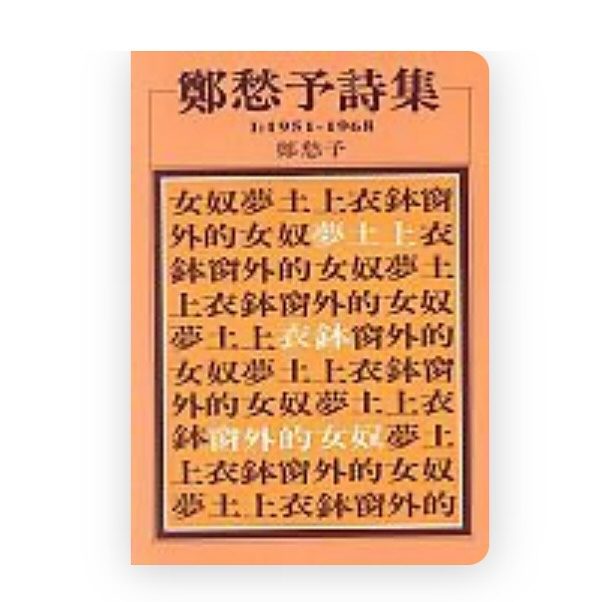 鄭愁予詩集
I:1951-1968
鄭愁予
女奴夢土上衣鉢窗
外的女奴夢土上衣
鉢窗外的女奴夢土
上衣鉢窗外的女奴
夢土上衣鉢窗外的
女奴夢土上衣鉢窗
外的女奴夢土上衣
鉢窗外的女奴夢土
上衣鉢窗外的女奴
夢土上衣鉢窗外的